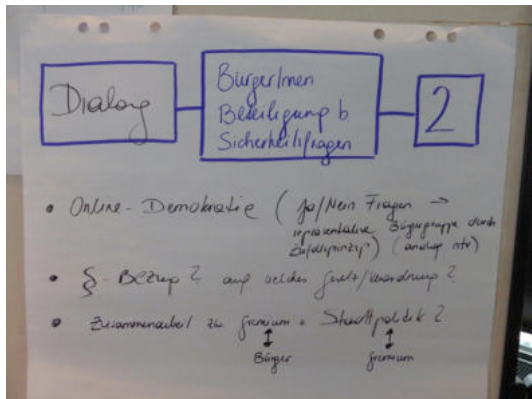 Dialog
BürgerInnen
Beteiligung b
Sicherheitsfragen
2
• Online-Demokratie ( Ja/Nein Fragen →
repräsentative Bürgergruppe durch
Zufallsprinzip) (analog ntv)
• §-Bezug? auf welches Gesetz/Verordnung?
• Zusammenarbeit zw Gremium + Stadtpolitik?
↕ ↕
Bürger Gremium